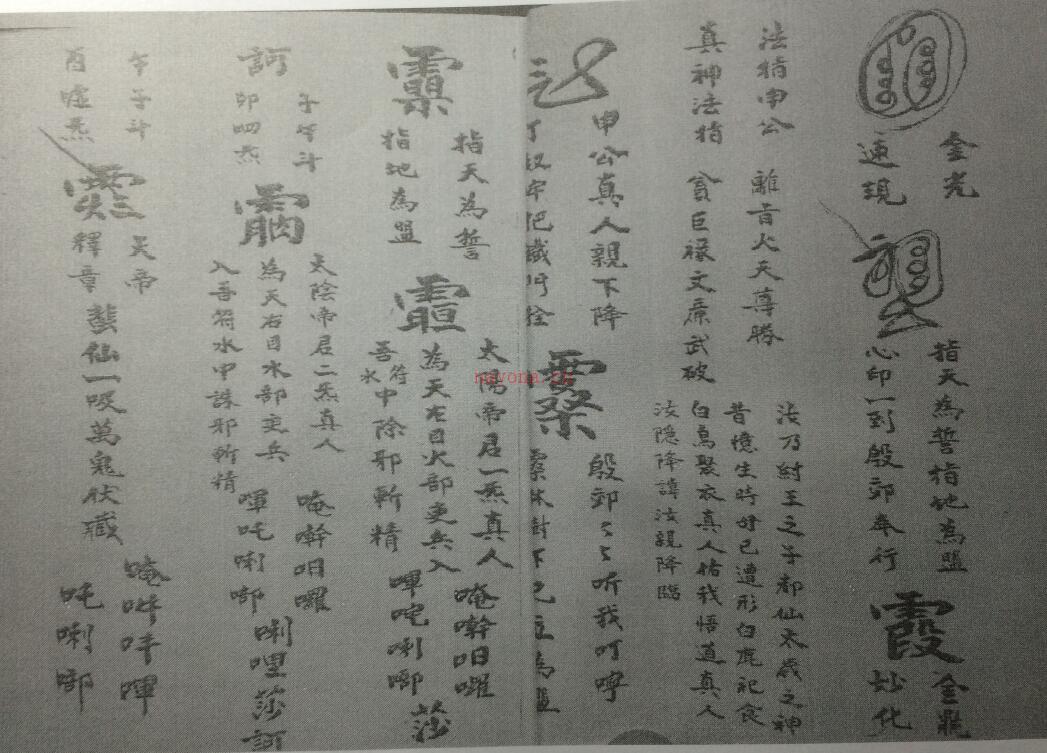 金光
速現
指天為誓指地為盟
心印一到殷郊奉行
霞
金鼎
妙化
法指申公 離旨火天尊勝
真神法指 貪巨祿文廉武破
汝乃紂王之子都仙太歲之神
昔憶生時好己遭形白鹿祀食
白鳥聚衣真人佑我悟道真人
汝隱降諱汝親降臨
申公真人親下降
丁奴牢把鐵門拴
殷郊々々听我叮嚀
指天為誓
指地為盟
太陽帝君一炁真人
為天左目火部吏兵入
吾符水中除邪斬精
唵幹呾囉
嗶吒唎啷
莎
訶
子午斗
卯四炁
太陰帝君二炁真人
為天右目水部吏兵
入吾符水中誅邪斬精
唵幹呾囉
嗶吒唎啷
唎哩莎訶
午子斗
酉噓炁
炁帝
釋章
蠻仙一吸萬鬼伏藏
唵吽吽嗶
吒唎啷
nayona.cn